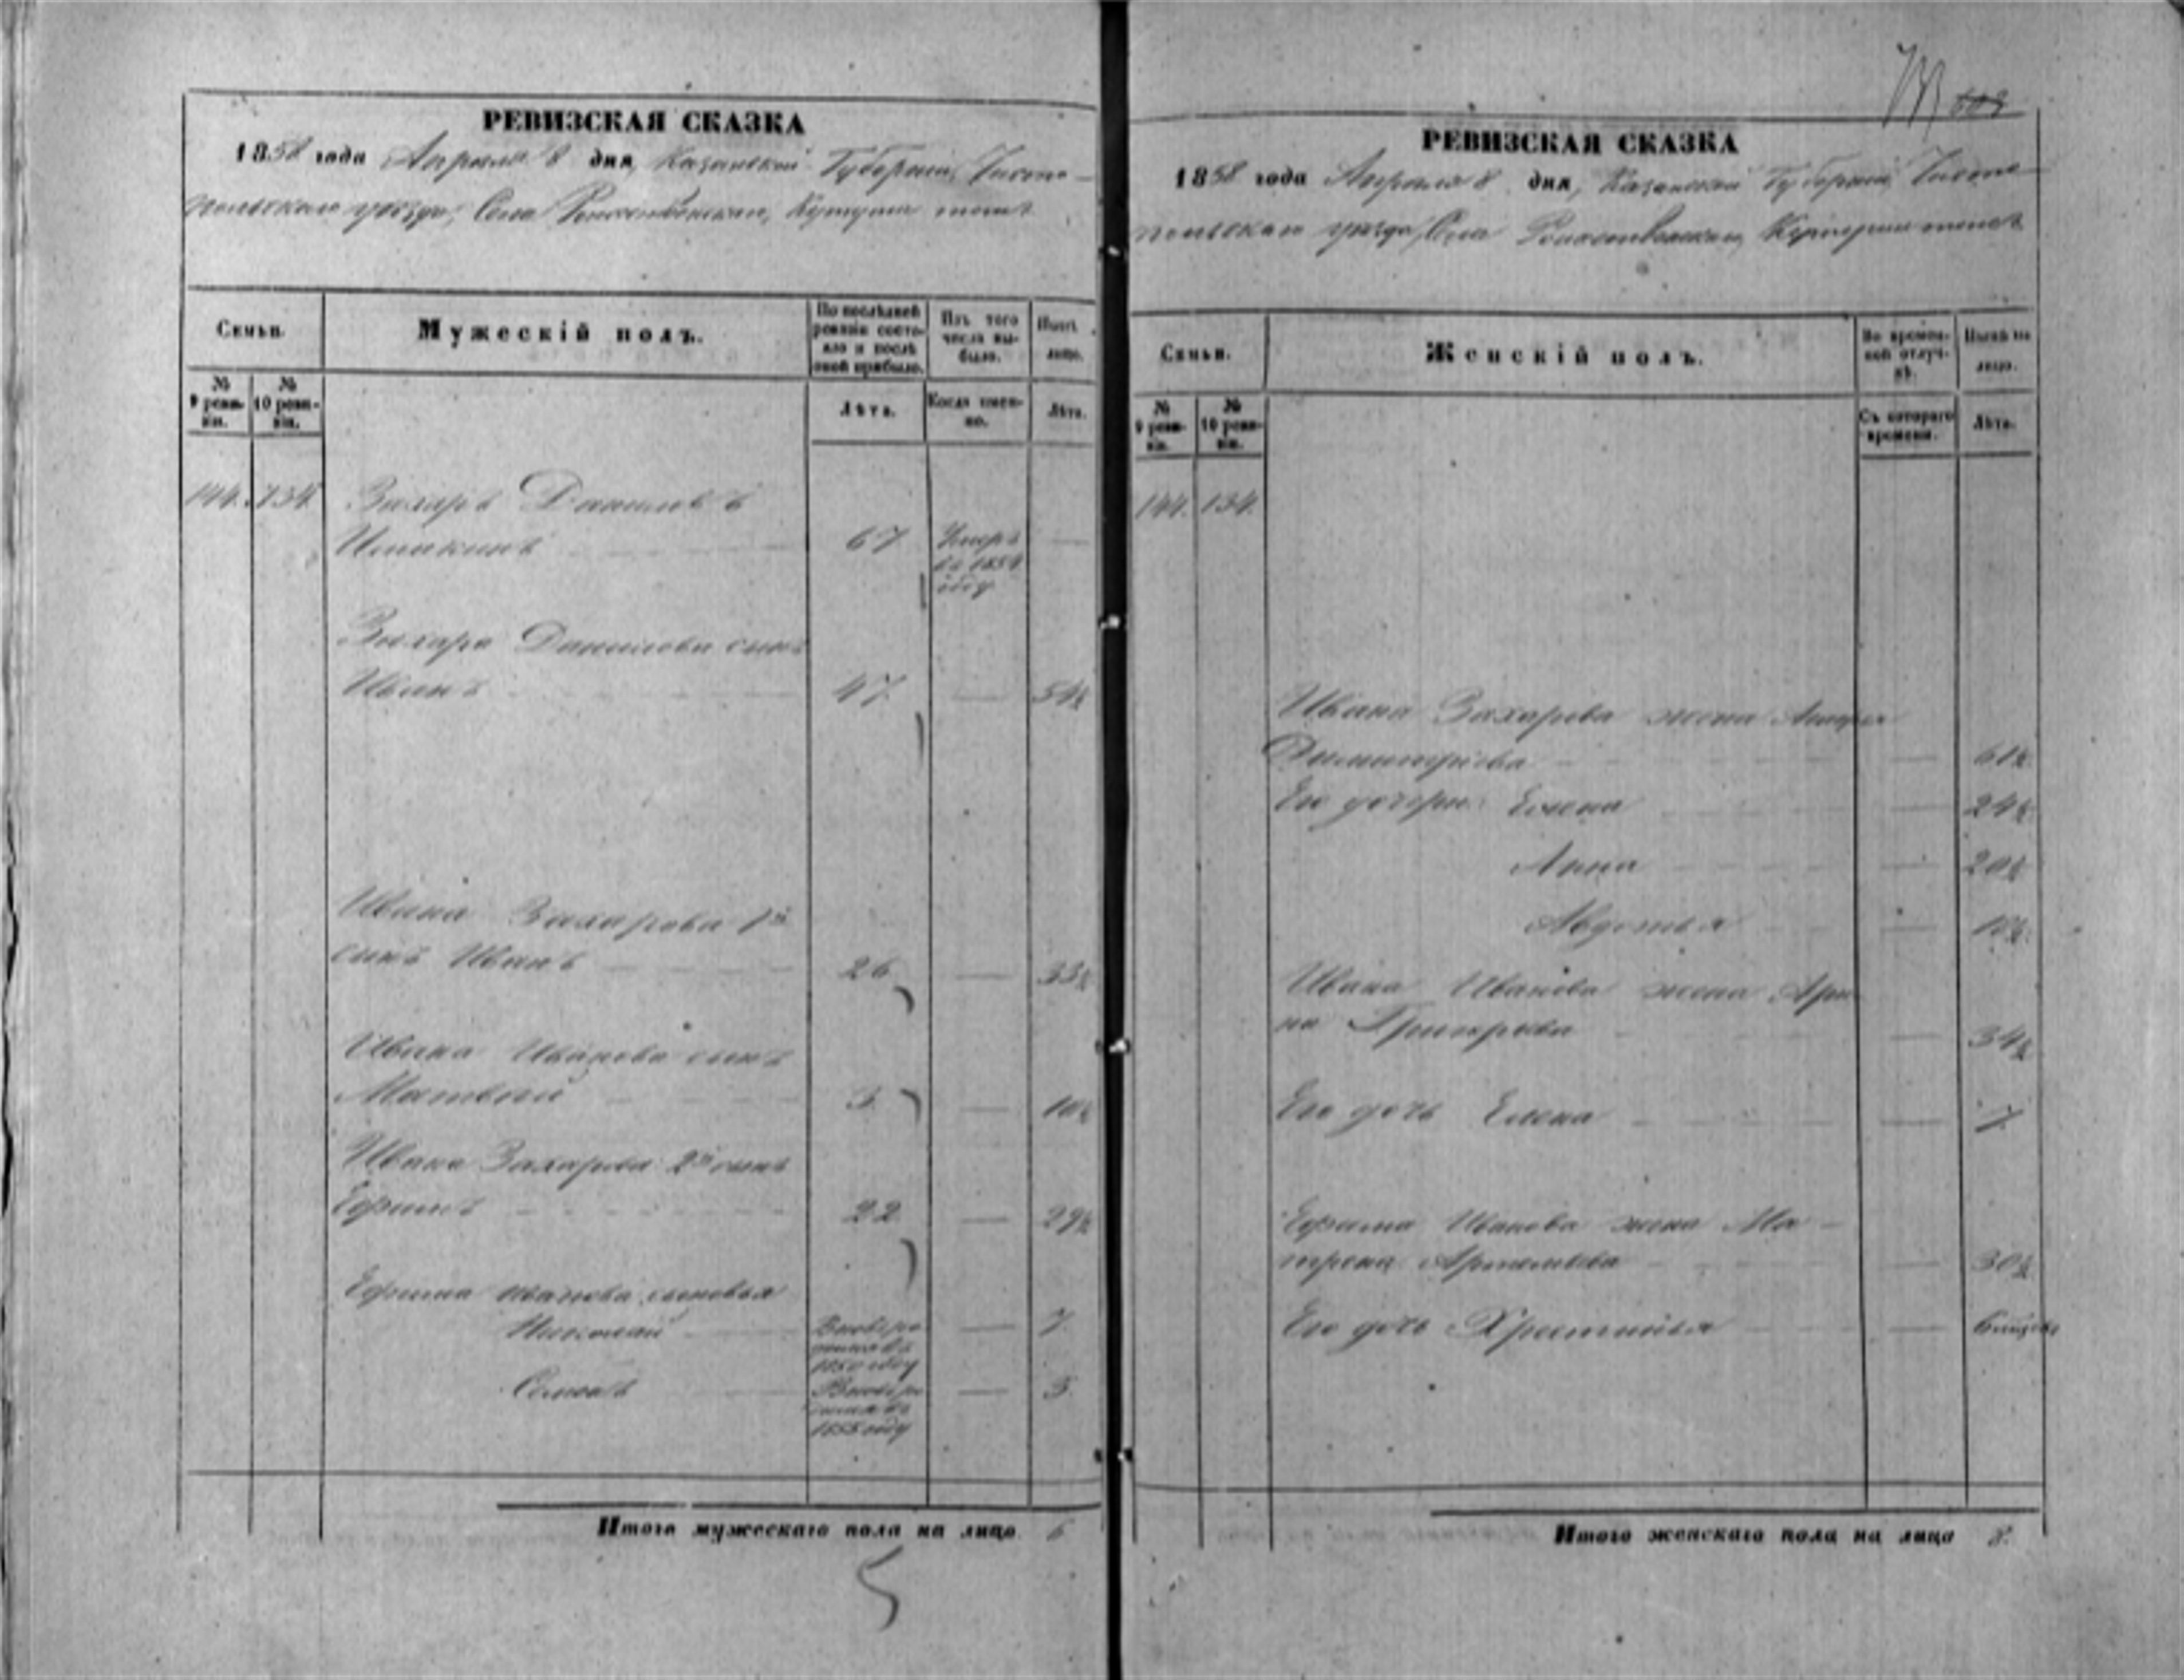 РЕВИЗСКАЯ СКАЗКА
1858 года Апреля 8 дня, Казанской Губерніи, Чисто-
польскаго уезда, Села Рождественскаго,
Семьи.
Мужескій полъ.
По послѣдней ревизіи состояло и послѣ оной прибыло.
Изъ того числа выбыло.
Нынѣ на лицо.
№ 9 ревизіи.
№ 10 ревизіи.
Лѣта.
Когда именно.
Лѣта.
144. 134.
Захаръ Даниловъ
67.
Умеръ
въ
году
Захара Данилова сынъ
Иванъ
47.
54½
Ивана Захарова 1й
сынъ Иванъ
26.
33½
Ивана Иванова сынъ
Матвей
3.
10½
Ивана Захарова 2й сынъ
Ефимъ
22.
29½
Ефима Иванова сыновья
Николай
7.
Семенъ
5.
Итого мужескаго пола на лицо. 6
5
РЕВИЗСКАЯ СКАЗКА
1858 года Апреля 8 дня, Казанской Губерніи, Чисто-
польскаго уезда, Села Рождественскаго,
Семьи.
Женскій полъ.
Во временной отлучкѣ.
Нынѣ на лицо.
№ 9 ревизіи.
№ 10 ревизіи.
Съ котораго времени.
Лѣта.
144. 134.
Ивана Захарова жена
Димитріева
61½
Его дочери Елена
24½
Анна
20½
Авдотья
Ивана Иванова жена Ари-
на Григорьева
34½
Его дочь Елена
7.
Ефима Иванова жена Ма-
трена Артемьева
30½
Его дочь Христинья
Итого женскаго пола на лицо 8.